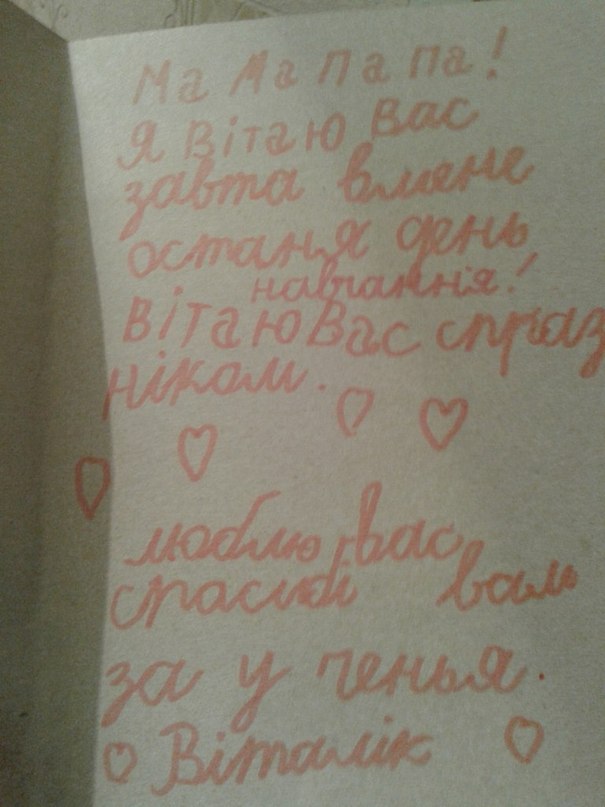 Ма Ма па па!
Я Вітаю Вас
завта вмене
останя день
навчання!
ВітаюВас спраз
ніком.
люблю вас
спасибі вам
за у ченья.
Віталік